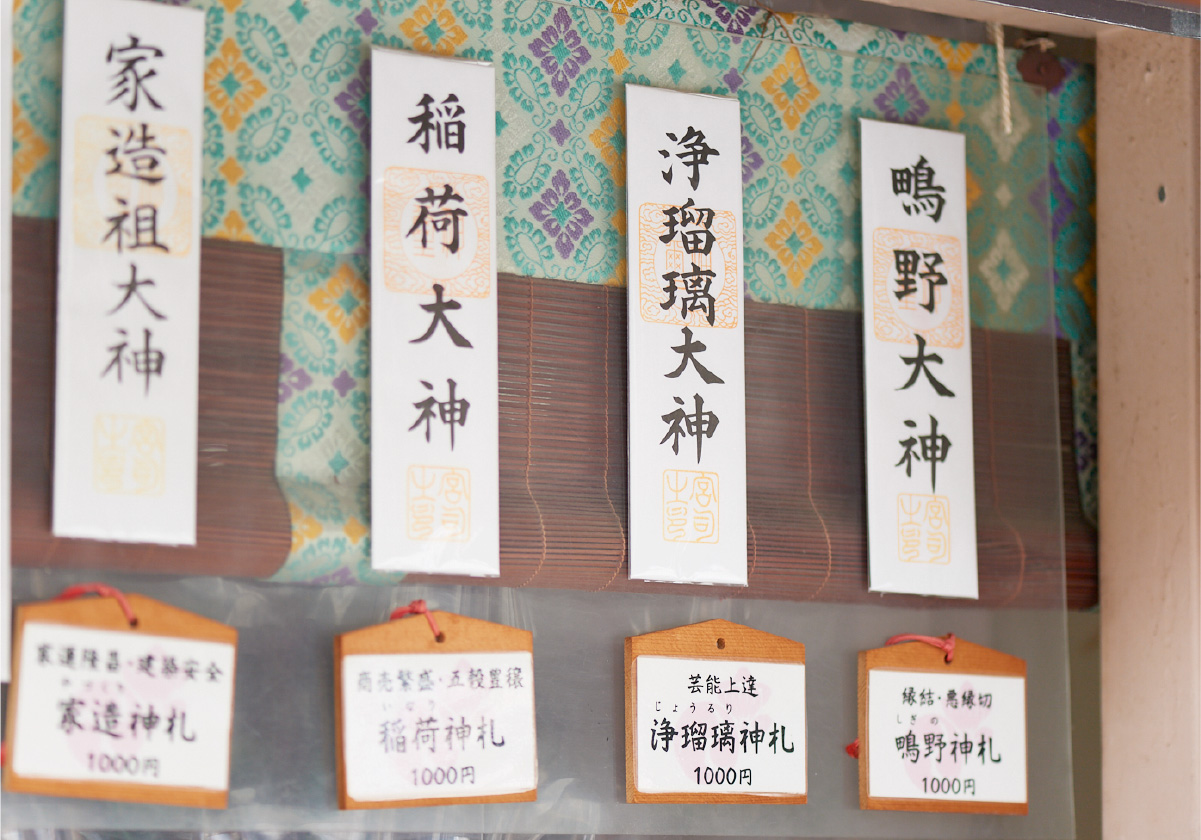 家造祖大神
稲荷大神
浄瑠璃大神
鴫野大神
宮司之印
宮司之印
宮司之印
宮司之印
家運隆昌・建築安全
やづくり
家造神札
1000円
商売繁盛・五穀豊穣
いなり
稲荷神札
1000円
芸能上達
じょうるり
浄瑠璃神札
1000円
縁結・悪縁切
しぎの
鴫野神札
1000円